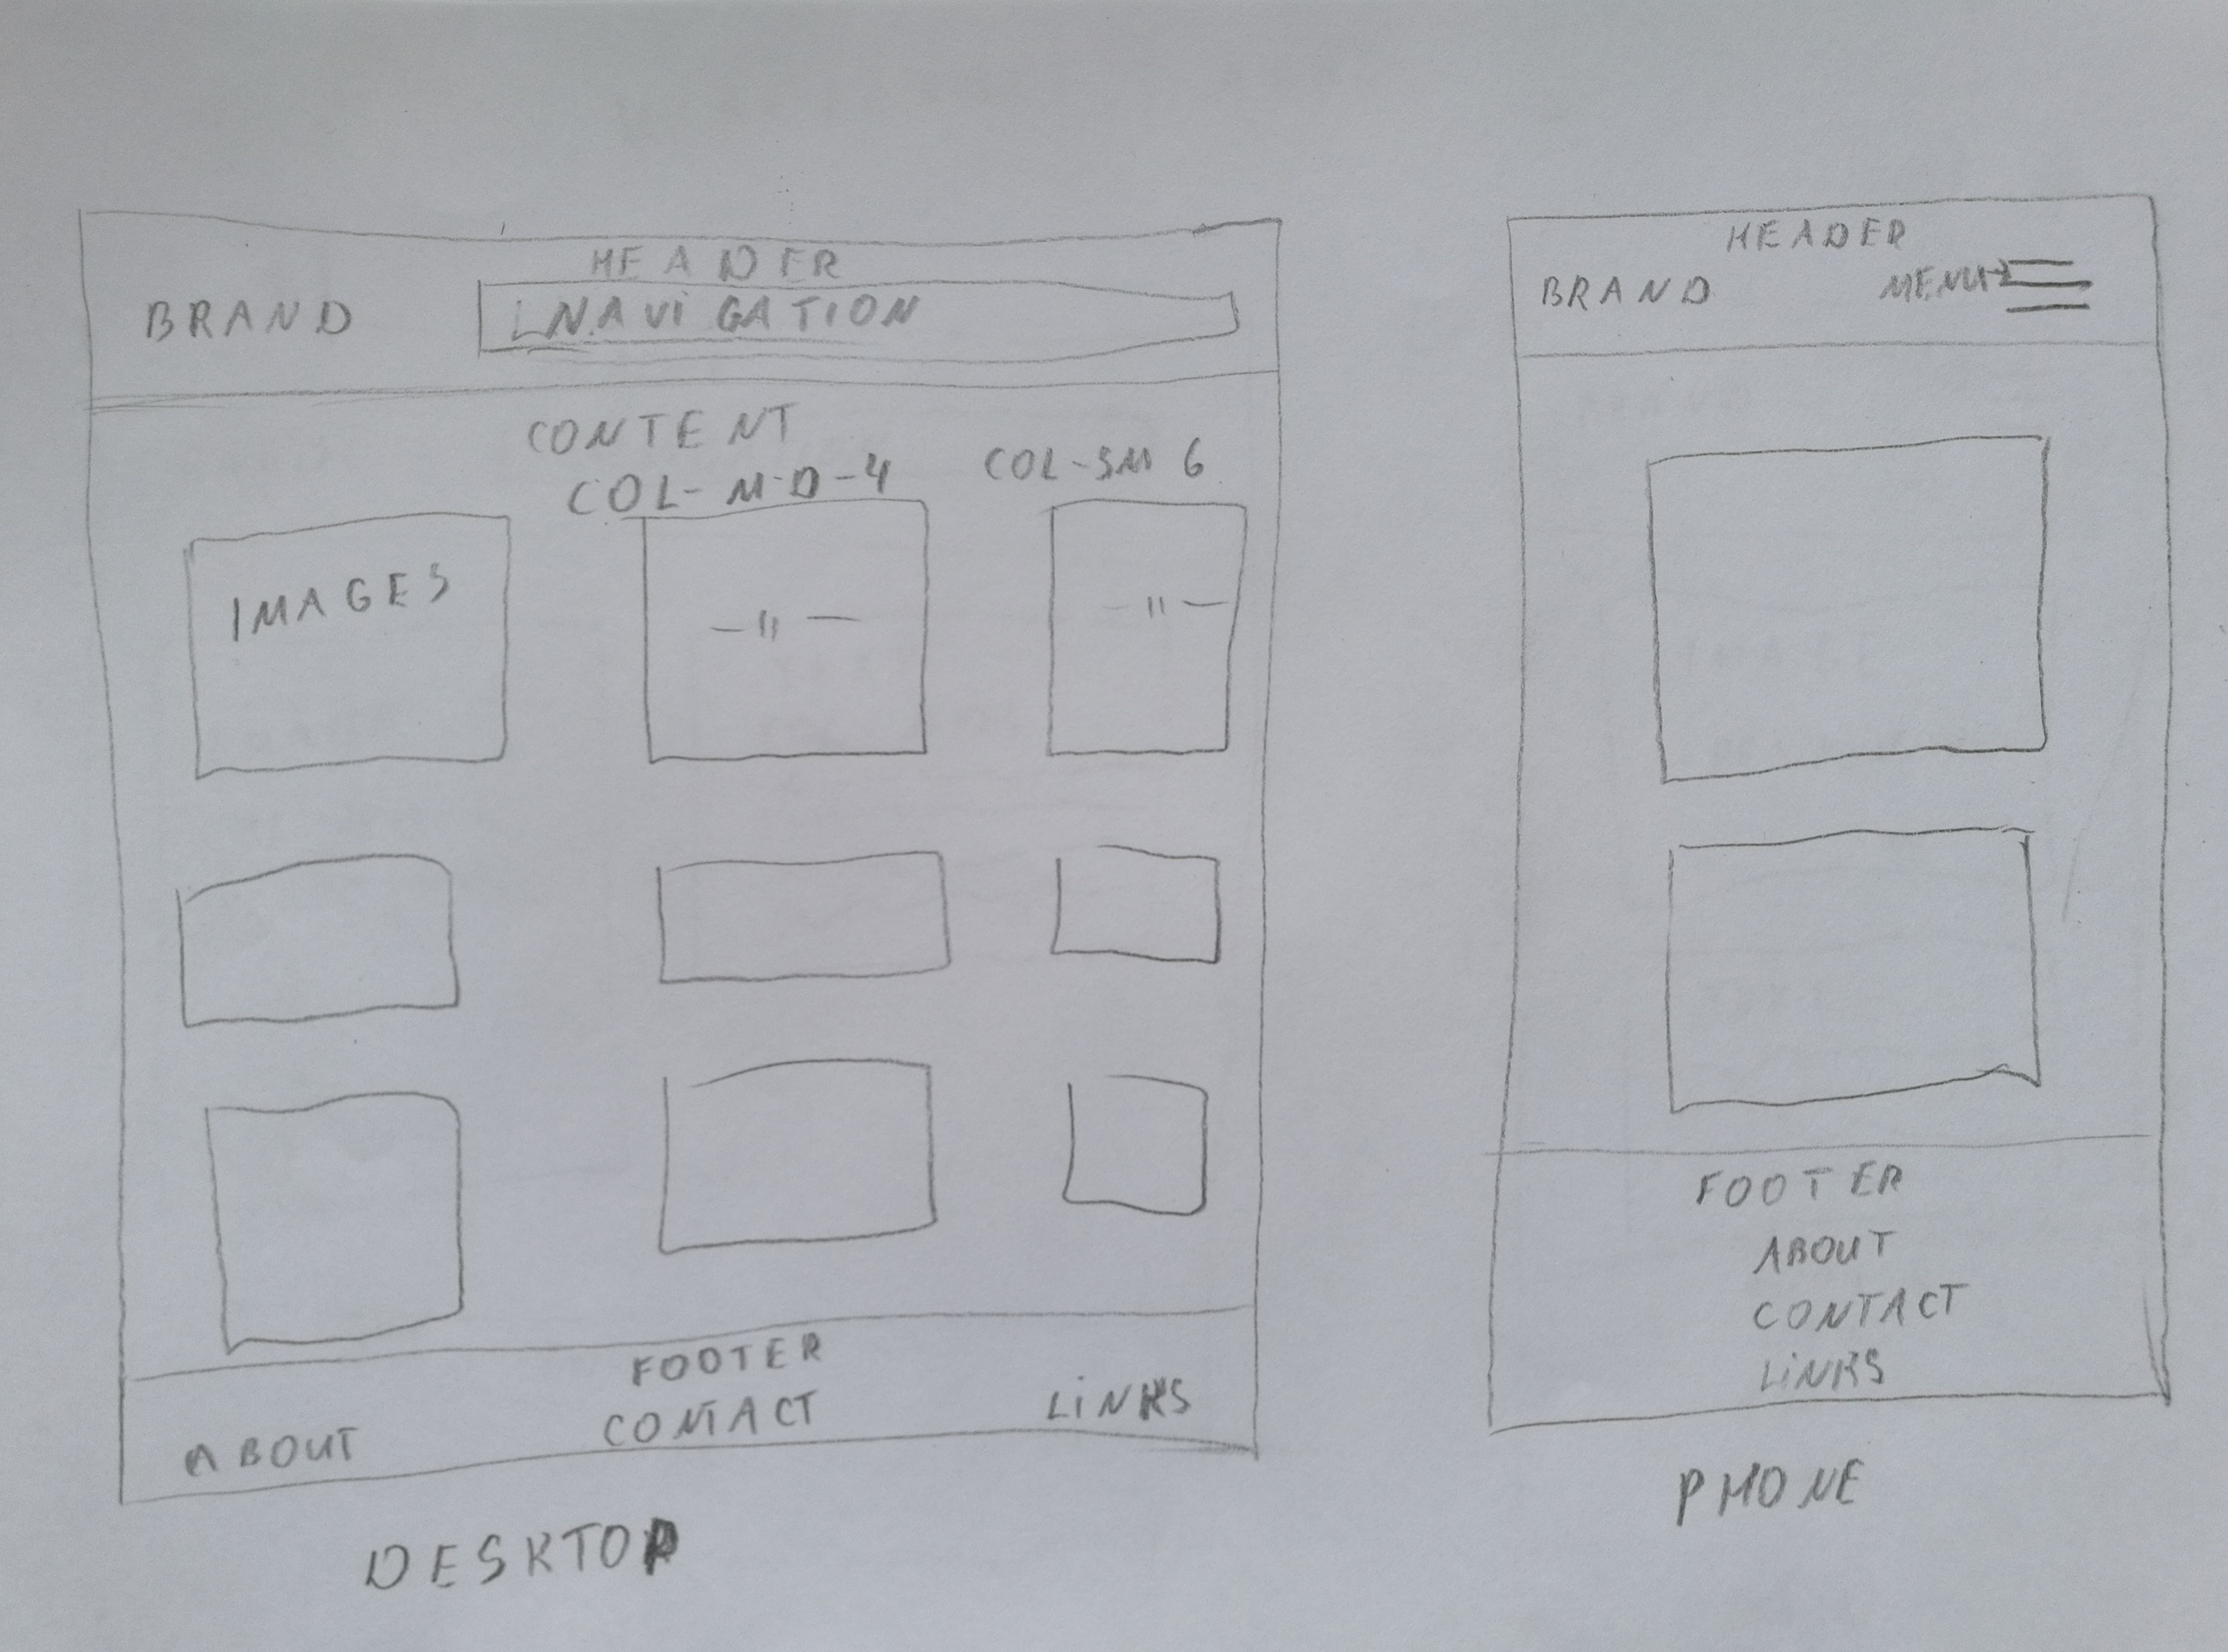 HEADER
BRAND
NAVIGATION
CONTENT
COL-MD-4
COL-SM 6
IMAGES
-11-
-11-
FOOTER
ABOUT
CONTACT
LiNKS
DESKTOP
HEADER
BRAND
MENU
FOOTER
ABOUT
CONTACT
LiNKS
PHONE